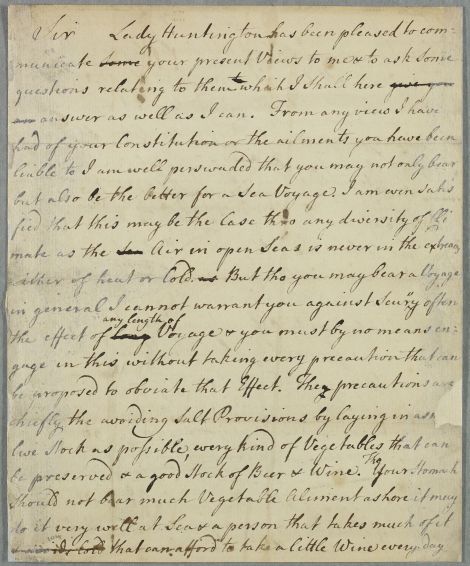 Sir Lady Huntington has been pleased to com-
municate some your present Views to me & to ask some
questions relating to them which I shall here give you
an answer as well as I can. From any view I have
had of your Constitution or the ailments you have been
liable to I am well perswaded that you may not only bear
but also be the better for a Sea Voyage, I am even satis
fied that this may be the Case thro any diversity of Cli
mate as the Air in open Seas is never in the extream
either of heat or Cold. as But tho you may bear a Voyage
in general I cannot warrant you against Scurvy often
the effect of long any length of Voyage & you must by no means en-
gage in this without taking every precaution that can
be proposed to obviate that Effect. These precautions are
chiefly the avoiding Salt Provisions by laying in as m
live Stock as possible, every kind of Vegetables that can
be preserved & a good Stock of Beer & Wine. Tho Your Stomach
Should not bear much Vegetable Aliment ashore it may
do it very well at Sea & a person that takes much of it
cold that can afford to take a little Wine every day